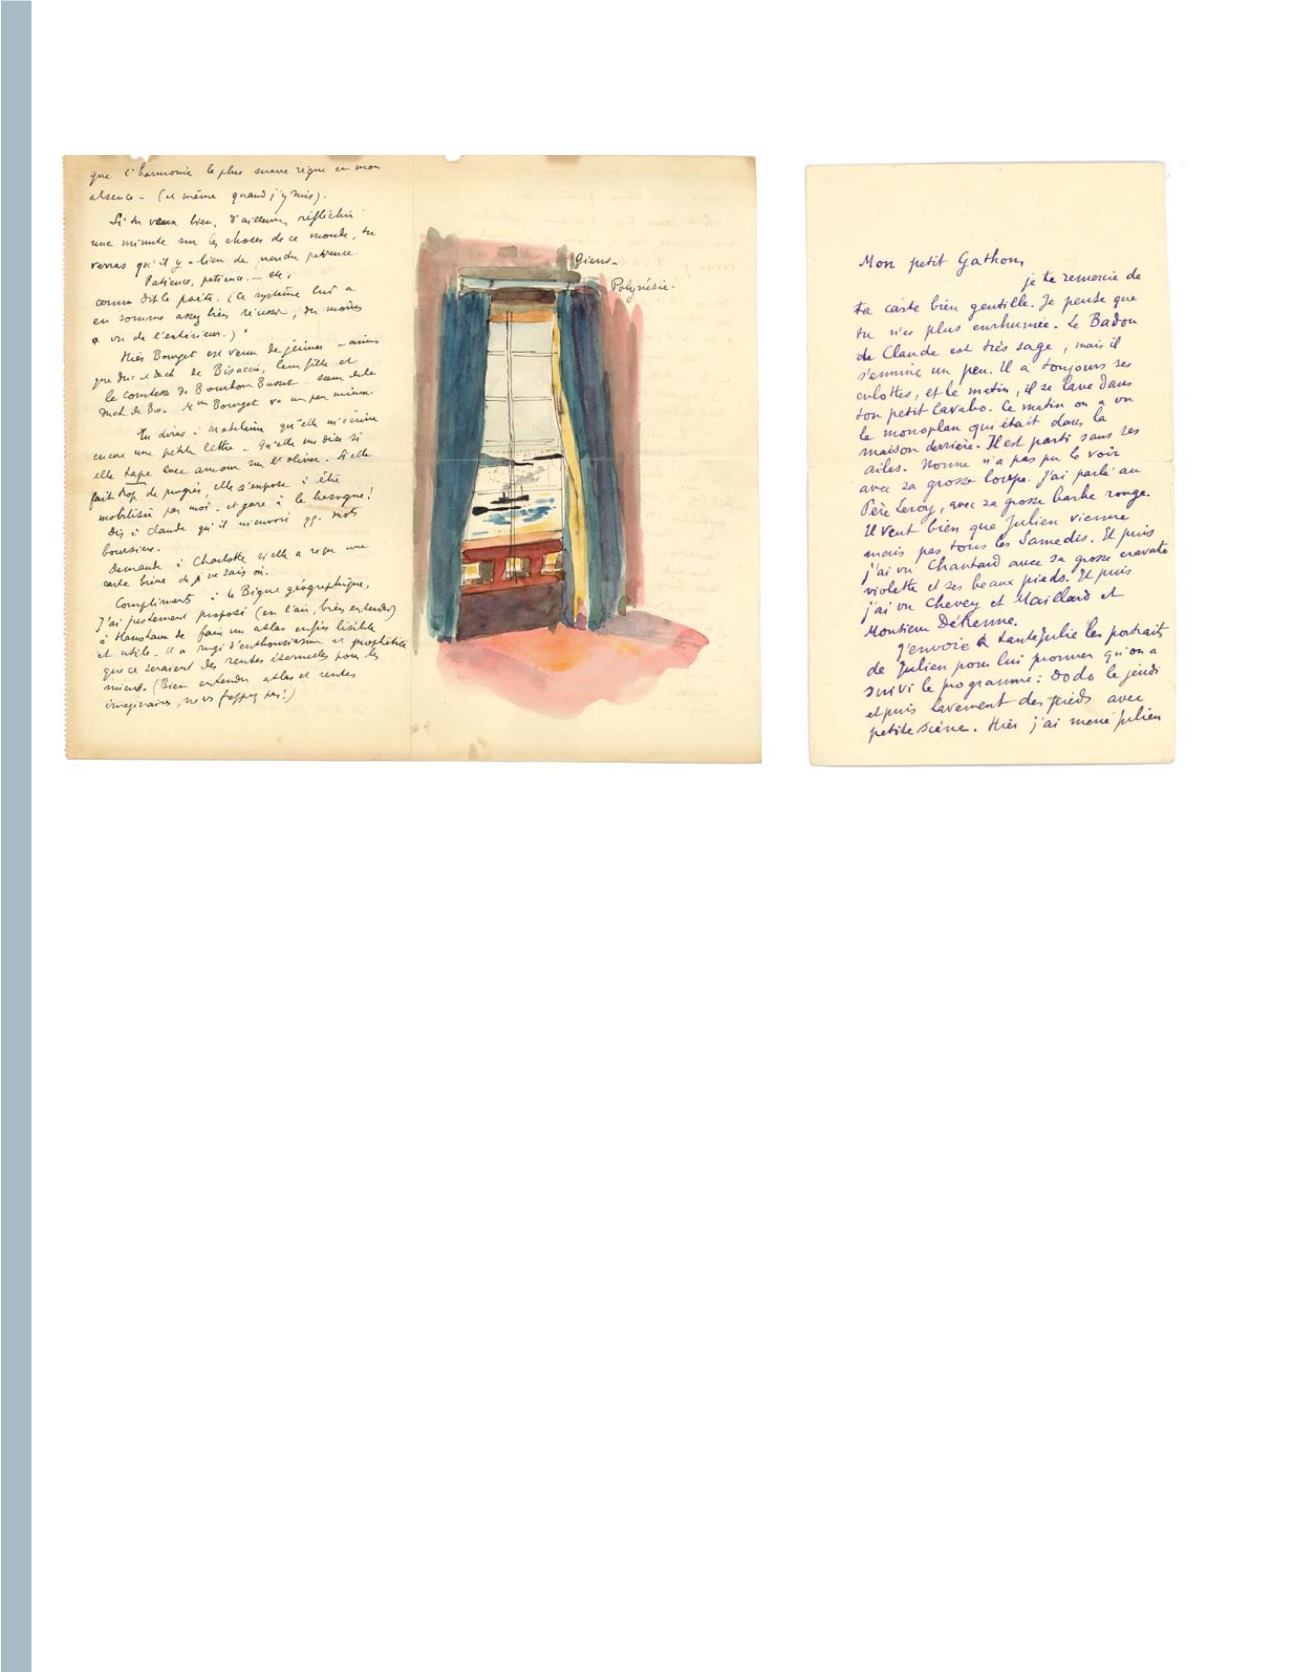 que l'harmonie la plus suave règne en mon
absence - (et même quand j'y suis).
Si tu veux bien, d'ailleurs, réfléchir
une minute sur les choses de ce monde, tu
verras qu'il y a lieu de prendre patience
Patience, patience. — etc.
comme dit le poète. (Ce système lui a
en somme assez bien réussi, du moins
a vu de l'extérieur.)
Hier Bourget est venu déjeuner - ainsi
que duc et duch. de Bisaccia, leur fille et
la comtesse de Bourbon Busset - sœur de la
duch. de Bis. Mme Bourget va un peu mieux.
Tu diras à Madeleine qu'elle m'écrive
encore une petite lettre - Qu'elle me dise si
elle tape avec amour sur l'oliver. Si elle
fait trop de progrès, elle s'expose à être
mobilisée par moi - et gare à la besogne!
Dis à Claude qu'il m'envoie qq. mots
boursiers.
Demande à Charlotte si elle a reçu une
carte brune de je ne sais où.
Compliments à la Bigue géographique,
J'ai justement proposé (en l'air, bien entendu)
à de faire un atlas enfin lisible
et utile - il a rugi d'enthousiasme et prophétisé
que ce seraient des rentes éternelles pour les
miens. (Bien entendu atlas et rentes
imaginaires, ne vs frappez pas!)
Giens -
Polynésie -
Mon petit Gathon,
je te remercie de
ta carte bien gentille. Je pense que
tu n'es plus enrhumée. Le Badou
de Claude est très sage, mais il
s'ennuie un peu. Il a toujours ses
culottes, et le matin, il se lave dans
ton petit lavabo. Ce matin on a vu
le monoplan qui était dans la
maison derrière. Il est parti sans ses
ailes. Nonne n'a pas pu le voir
avec sa grosse loupe. J'ai parlé au
Père Leroy, avec sa grosse barbe rouge.
Il veut bien que Julien vienne
mais pas tous les Samedis. Et puis
j'ai vu Chautard avec sa grosse cravate
violette et ses beaux pieds. Et puis
j'ai vu Chevey et Maillard et
Monsieur Détienne.
J'envoie à tante Julie les portraits
de Julien pour lui prouver qu'on a
suivi le programme: Dodo le jeudi
et puis lavement des pieds avec
petite scène. Hier j'ai mené Julien